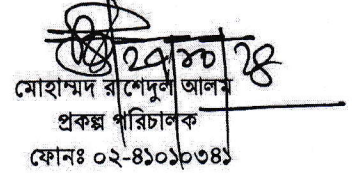 ২৭/১০/২৪
মোহাম্মদ রাশেদুল আলম
প্রকল্প পরিচালক
ফোনঃ ০২-৪১০১০৩৪১